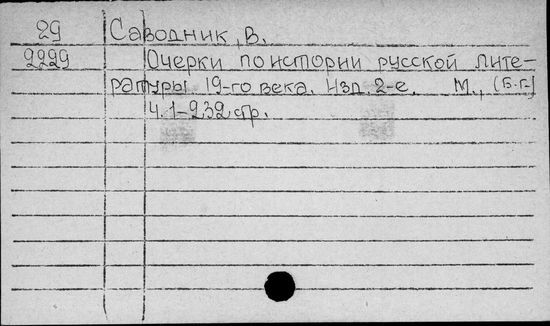 29 Саводник, В.
2229 Очерки по истории русской лите-
ратуры 19-го века. Изд. 2-е. М., (б.г.)
ч. 1-232 стр.